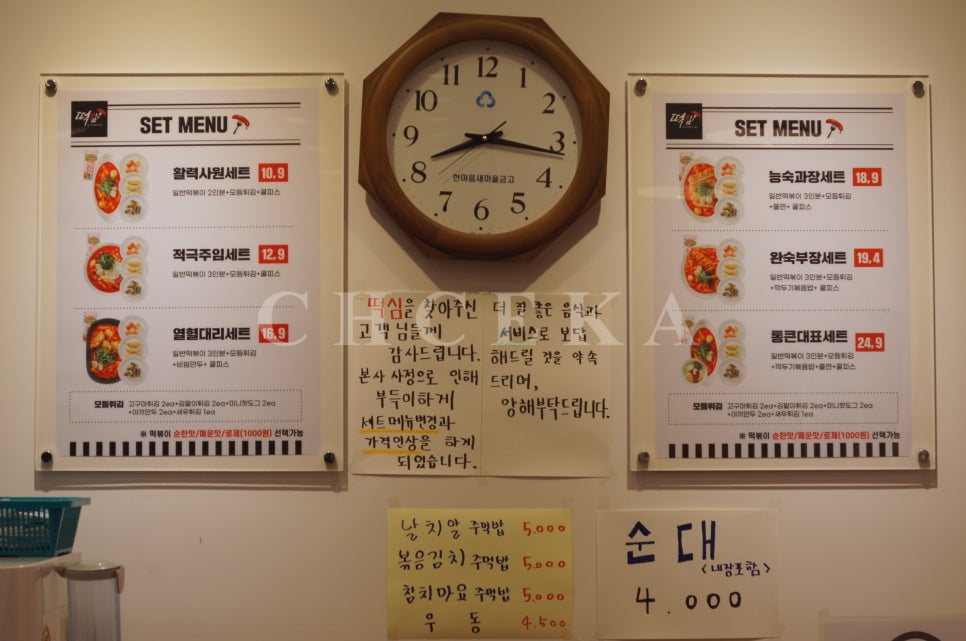 떡심
SET MENU
활력사원세트 10.9
일반떡볶이 2인분+모듬튀김+쿨피스
적극주임세트 12.9
일반떡볶이 3인분+모듬튀김+쿨피스
열혈대리세트 16.9
일반떡볶이 3인분+모듬튀김
+비빔만두+ 쿨피스
모듬튀김 고구마튀김 2ea+김말이튀김 2ea+미니핫도그 2ea
+야끼만두 2ea+새우튀김 1ea
※ 떡볶이 순한맛/매운맛/로제(1000원) 선택가능
12
1
2
3
4
5
6
7
8
9
10
11
한마음새마을금고
떡심
SET MENU
능숙과장세트 18.9
일반떡볶이 3인분+모듬튀김
+쫄면+ 쿨피스
완숙부장세트 19.4
일반떡볶이 3인분+모듬튀김
+깍두기볶음밥+ 쿨피스
통큰대표세트 24.9
일반떡볶이 3인분+모듬튀김
+깍두기볶음밥+쫄면+쿨피스
모듬튀김 고구마튀김 2ea+김말이튀김 2ea+미니핫도그 2ea
+야끼만두 2ea+새우튀김 1ea
※ 떡볶이 순한맛/매운맛/로제(1000원) 선택가능
CHCEKA
떡심을 찾아주신
고객님들께
감사드립니다.
본사 사정으로 인해
부득이하게
세트메뉴변경과
가격인상을 하게
되었습니다.
더 질 좋은 음식과
서비스로 보답
해드릴 것을 약속
드리며,
양해부탁드립니다.
날치알 주먹밥 5.000
볶음김치 주먹밥 5.000
참치마요 주먹밥 5.000
우동 4.500
순대
<내장포함>
4.000